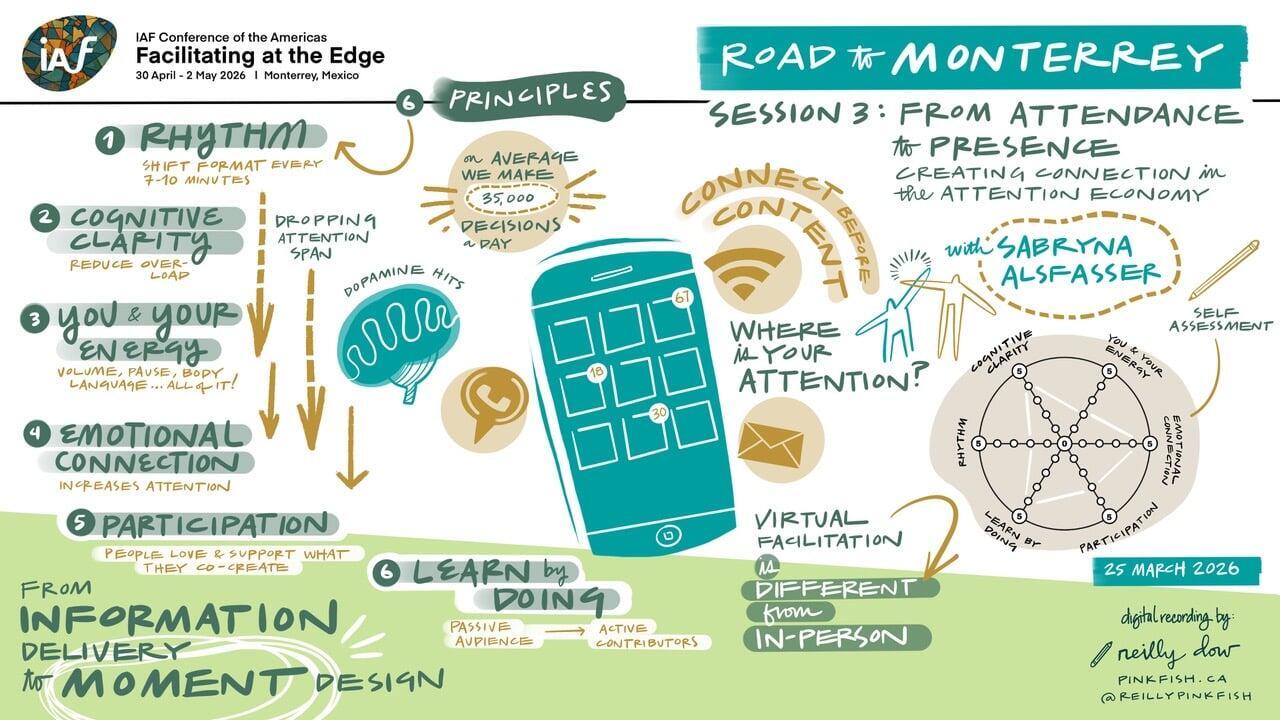 iAF
IAF Conference of the Americas
Facilitating at the Edge
30 April - 2 May 2026 | Monterrey, Mexico
ROAD to MONTERREY
SESSION 3: FROM ATTENDANCE
to PRESENCE
CREATING CONNECTION in
the ATTENTION ECONOMY
with SABRYNA
ALSFASSER
6 PRINCIPLES
1 RHYTHM
SHIFT FORMAT EVERY
7-10 MINUTES
2 COGNITIVE
CLARITY
REDUCE OVER-
LOAD
3 YOU & YOUR
ENERGY
VOLUME, PAUSE, BODY
LANGUAGE... ALL of IT!
4 EMOTIONAL
CONNECTION
INCREASES ATTENTION
5 PARTICIPATION
PEOPLE LOVE & SUPPORT WHAT
THEY CO-CREATE
6 LEARN by
DOING
PASSIVE
AUDIENCE
ACTIVE
CONTRIBUTORS
DROPPING
ATTENTION
SPAN
DOPAMINE HITS
on AVERAGE
WE MAKE
35,000
DECISIONS
a DAY
67
18
30
CONNECT BEFORE
CONTENT
WHERE
is YOUR
ATTENTION?
SELF
ASSESSMENT
COGNITIVE
CLARITY
YOU & YOUR
ENERGY
EMOTIONAL
CONNECTION
PARTICIPATION
LEARN BY
DOING
RHYTHM
5
5
5
0
5
5
5
VIRTUAL
FACILITATION
is
DIFFERENT
from
IN-PERSON
FROM
INFORMATION
DELIVERY
to MOMENT DESIGN
25 MARCH 2026
digital recording by:
reilly dow
PINKFISH.CA
@REILLYPINKFISH